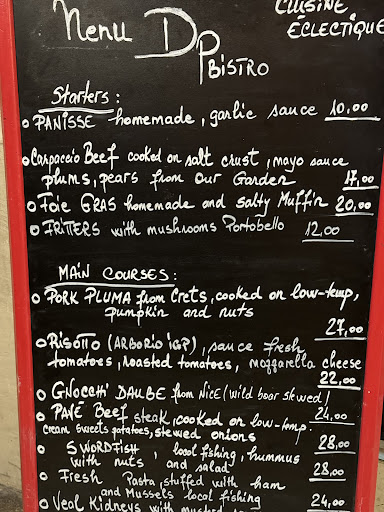 CUISINE
ÉCLECTIQUE
Menu DP
BISTRO
Starters :
PANISSE homemade, garlic sauce 10,00
Carpaccio BEEF cooked on salt crust, mayo sauce
plums, pears from Our Garden 17,00
Foie GRAS homemade and salty Muffin 20,00
FRITTERS with mushrooms Portobello 12,00
MAIN COURSES :
PORK PLUMA from Crets, cooked on low-temp,
pumpkin and nuts
27,00
RISOTTO (ARBORIO IGP), sauce fresh
tomatoes, roasted tomatoes, mozzarella cheese
22,00
GNOCCHI DAUBE from NICE (wild boar stewed)
24,00
PAVÉ Beef steak, cooked on low-temp.
cream sweets potatoes, stewed onions
28,00
SWORDFISH, local fishing, hummus
with nuts and salad
28,00
Fresh Pasta, stuffed with ham
and Mussels local fishing
24,00
Veal Kidneys with